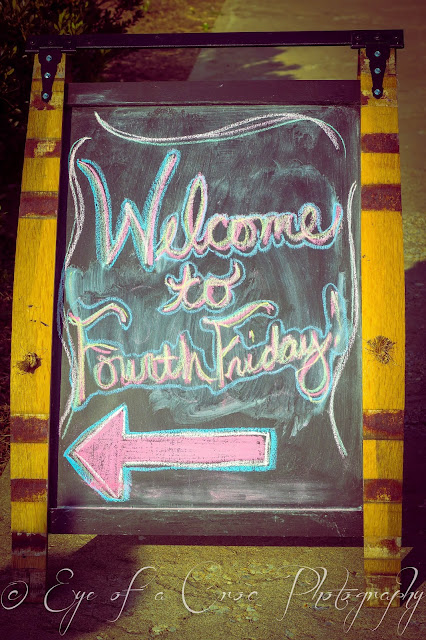 Welcome
to
Fourth Friday!
© Eye of a Croc Photography